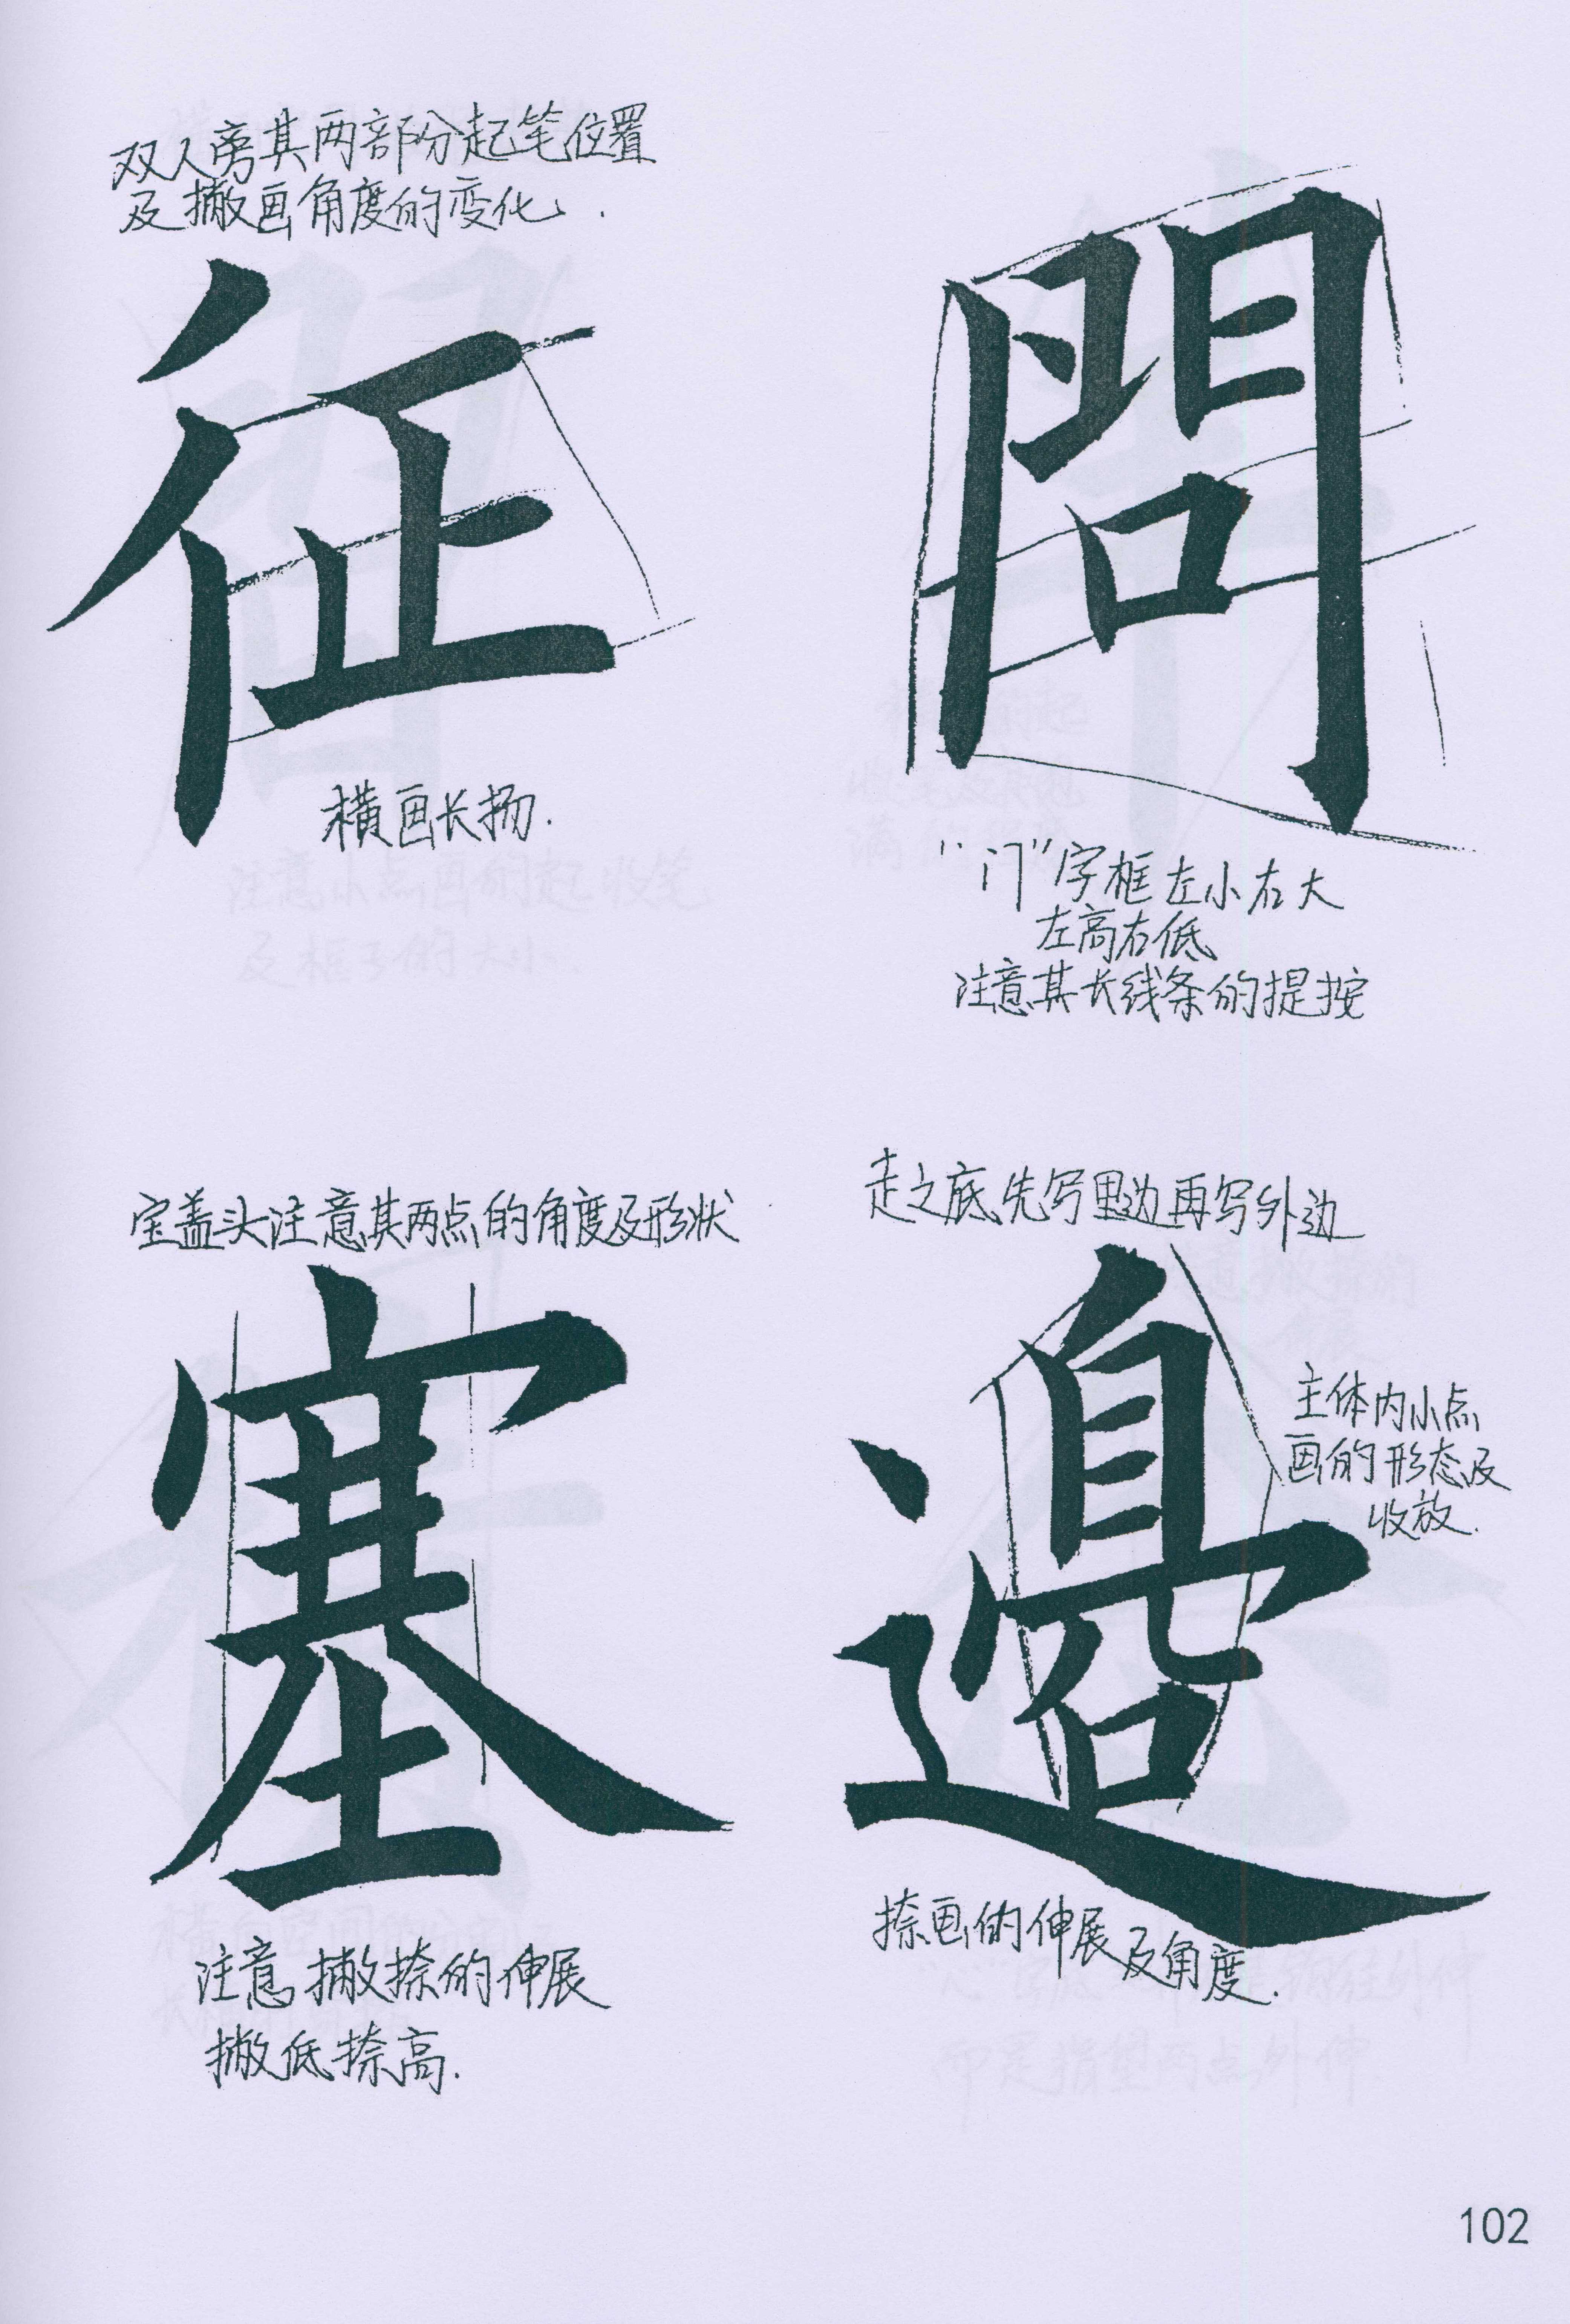 双人旁其两部分起笔位置
及撇画角度的变化.
征
横画长扬.
問
"门"字框左小右大
左高右低
注意其长线条的提按
宝盖头注意其两点的角度及形状
塞
注意撇捺的伸展
撇低捺高.
走之底先写里边再写外边
邊
主体内小点
画的形态及
收放.
捺画的伸展及角度.
102